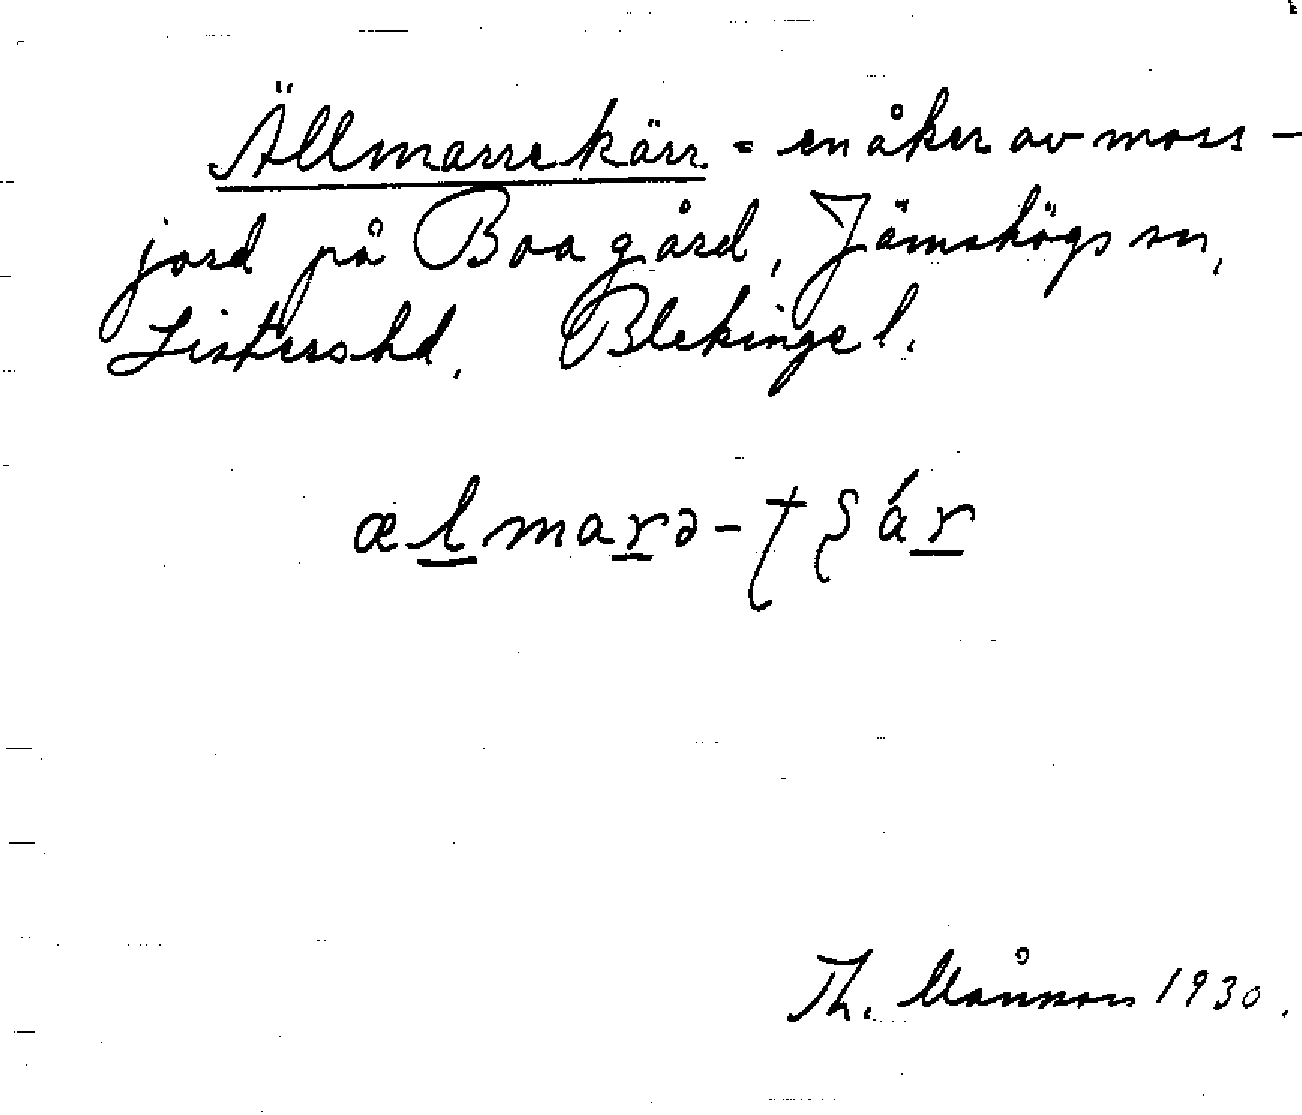 Ällmarrekärr = en åker av moss-
jord på Boagård, Jämshögs sn,
Listers hd. Blekinge l.
ælmarə-tʃár
Th. Månsson 1930.